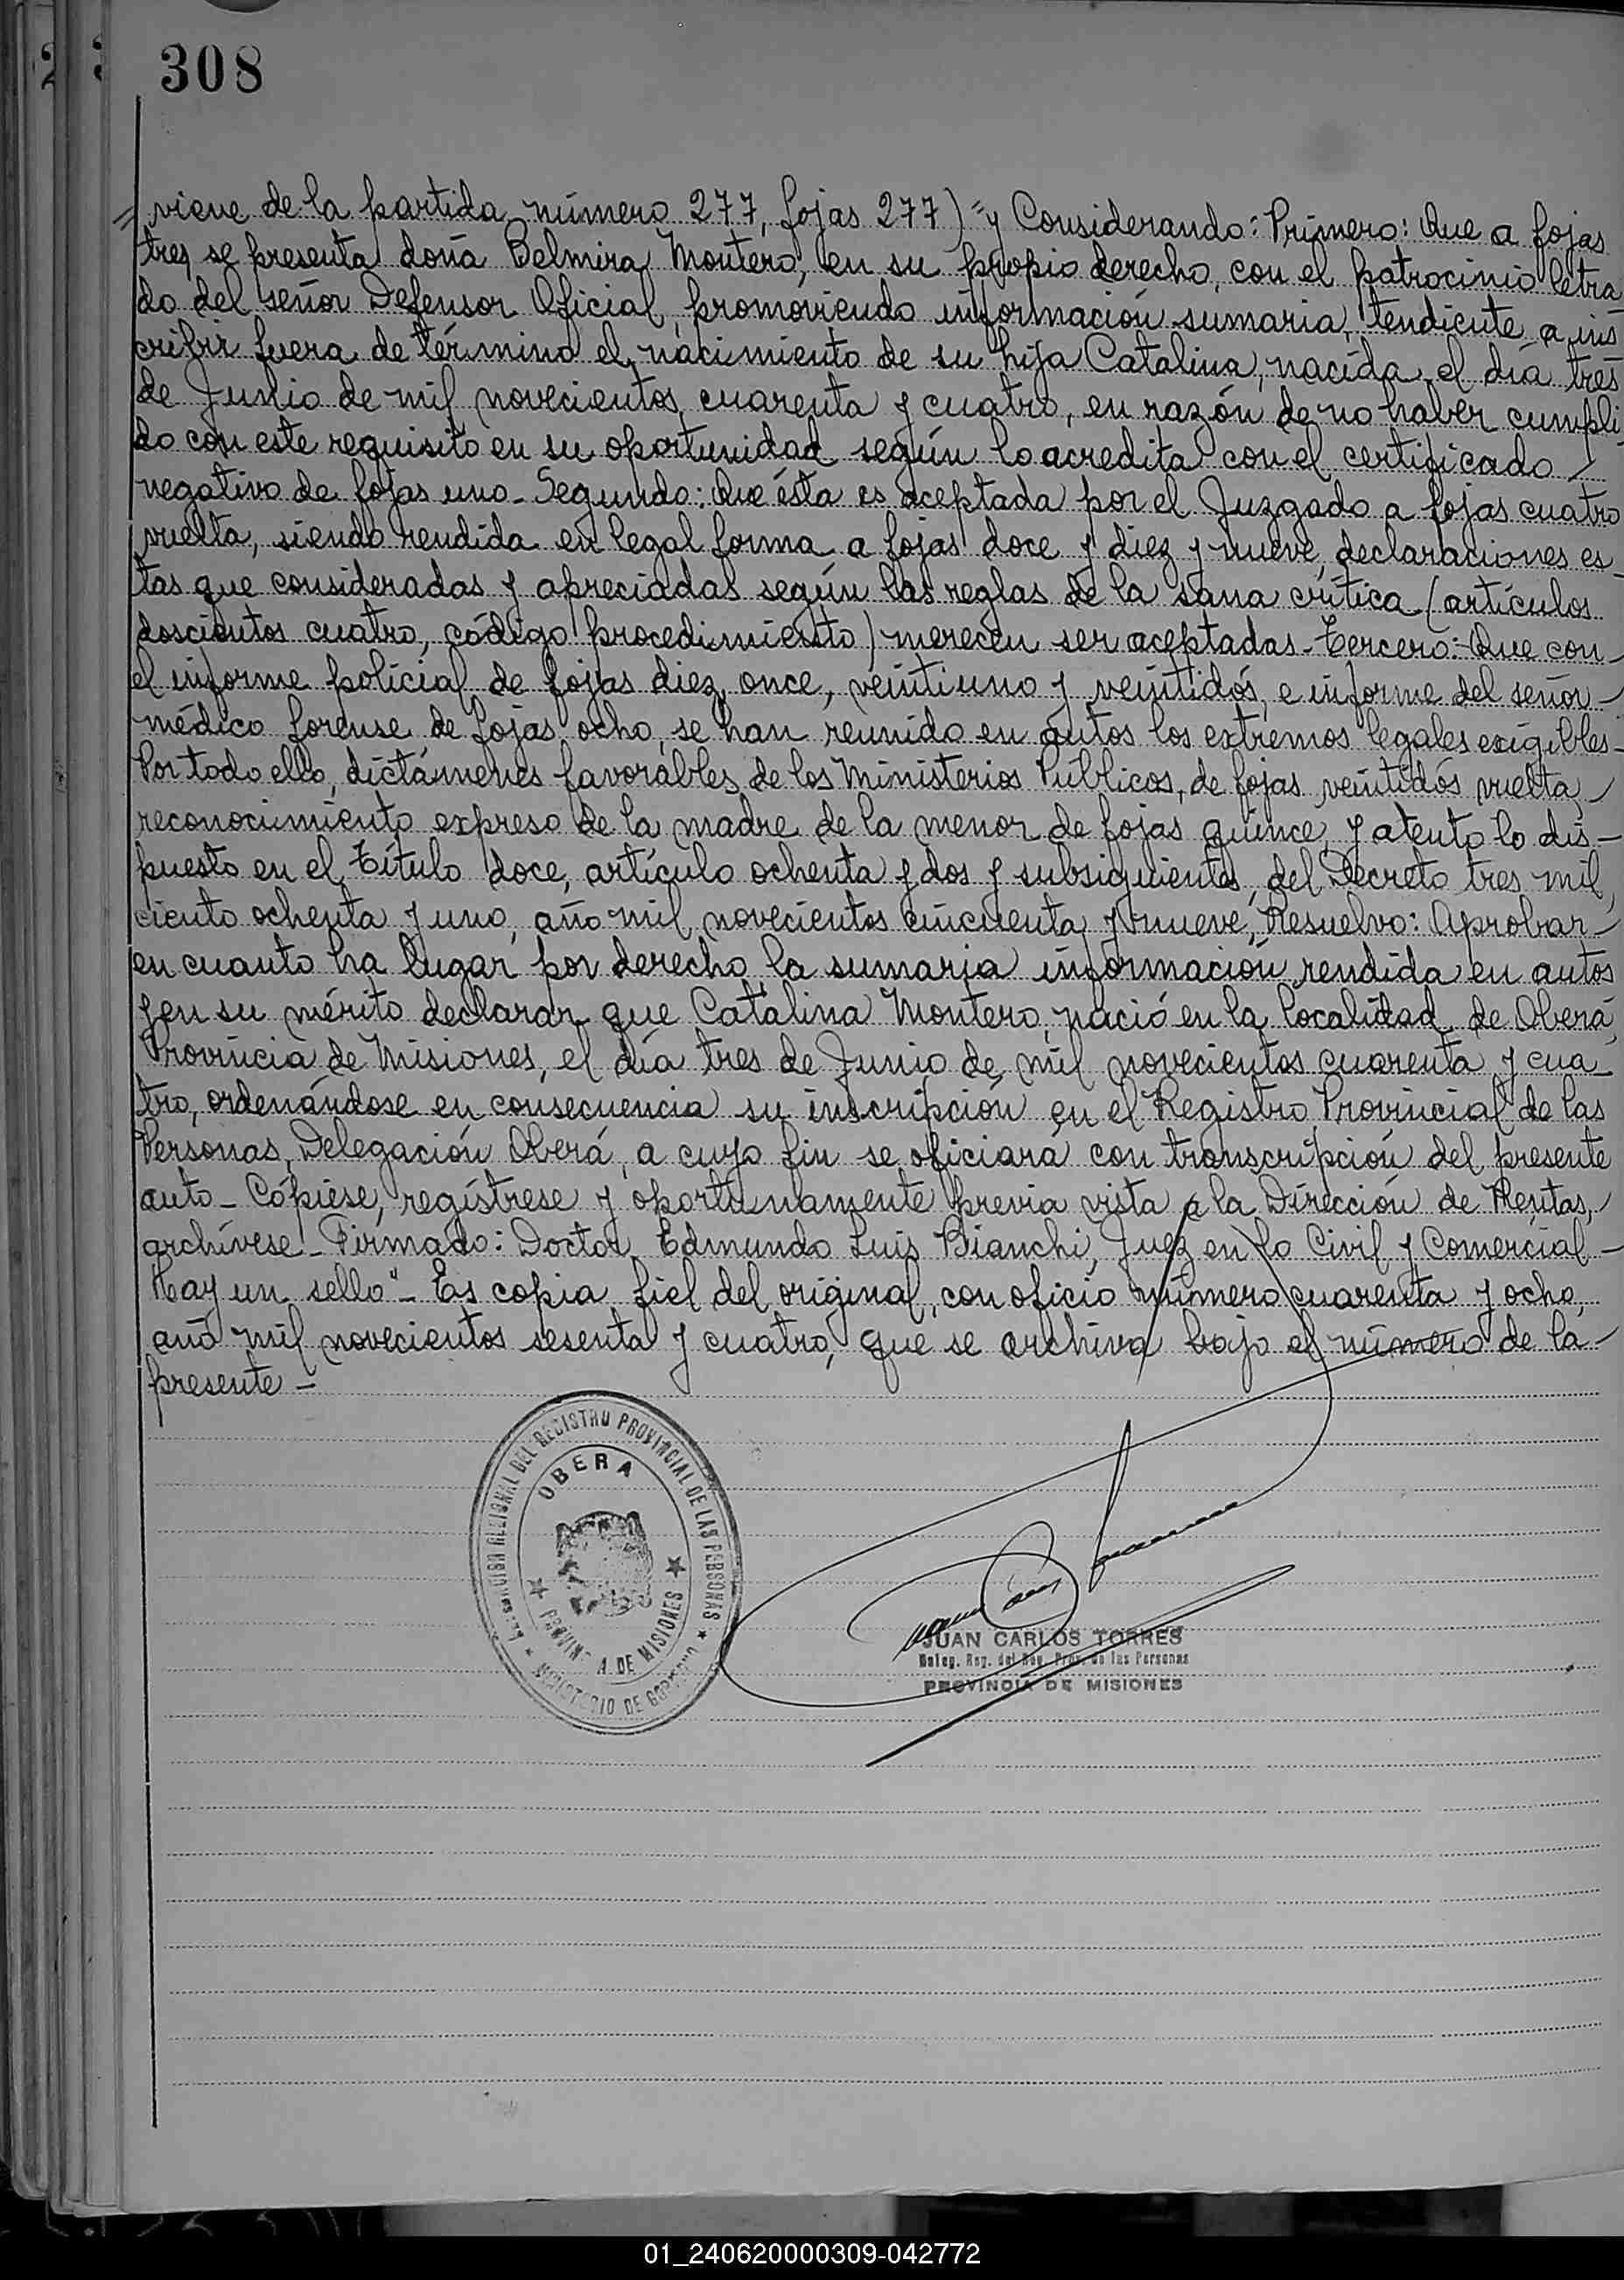 308
= viene de la partida número 277, fojas 277) "y Considerando: Primero: Que a fojas
tres se presenta doña Belmira Montero, en su propio derecho, con el patrocinio letra
do del señor Defensor Oficial, promoviendo información sumaria, tendiente a ins
cribir fuera de término el nacimiento de su hija Catalina, nacida el día tres
de Junio de mil novecientos cuarenta y cuatro, en razón de no haber cumpli
do con este requisito en su oportunidad según lo acredita con el certificado /
negativo de fojas uno - Segundo: Que ésta es aceptada por el Juzgado a fojas cuatro
vuelta, siendo rendida en legal forma a fojas doce y diez y nueve, declaraciones es_
tas que consideradas y apreciadas según las reglas de la sana crítica (artículos
doscientos cuatro, código procedimiento) merecen ser aceptadas - Tercero: - Que con -
el informe policial de fojas diez, once, veintiuno y veintidós, e informe del señor -
médico forense de fojas ocho, se han reunido en autos los extremos legales exigibles -
Por todo ello, dictámenes favorables de los Ministerios Públicos, de fojas veintidós vuelta, /
reconocimiento expreso de la madre de la menor de fojas quince, y atento lo dis -
puesto en el Título doce, artículo ochenta y dos y subsiguientes, del Decreto tres mil
ciento ochenta y uno, año mil novecientos cincuenta y nueve, Resuelvo: Aprobar -
en cuanto ha lugar por derecho, la sumaria información rendida en autos
y en su mérito declarar que Catalina Montero, nació en la localidad de Oberá,
Provincia de Misiones, el día tres de Junio de mil novecientos cuarenta y cua_
tro, ordenándose en consecuencia su inscripción en el Registro Provincial de las
Personas, Delegación Oberá, a cuyo fin se oficiará con transcripción del presente
auto - Cópiese, regístrese y oportunamente previa vista a la Dirección de Rentas, /
archívese - Firmado: Doctor Edmundo Luis Bianchi, Juez en lo Civil y Comercial -
Hay un sello" - Es copia fiel del original, con oficio número cuarenta y ocho,
año mil novecientos sesenta y cuatro, que se archiva bajo el número de la -
presente -
DEL REGISTRO PROVINCIAL DE LAS PERSONAS
OBERA
PROVINCIA DE MISIONES
MINISTERIO DE GOBIERNO
JUAN CARLOS TORRES
Deleg. Reg. del Reg. Prov. de las Personas
PROVINCIA DE MISIONES
01_240620000309-042772